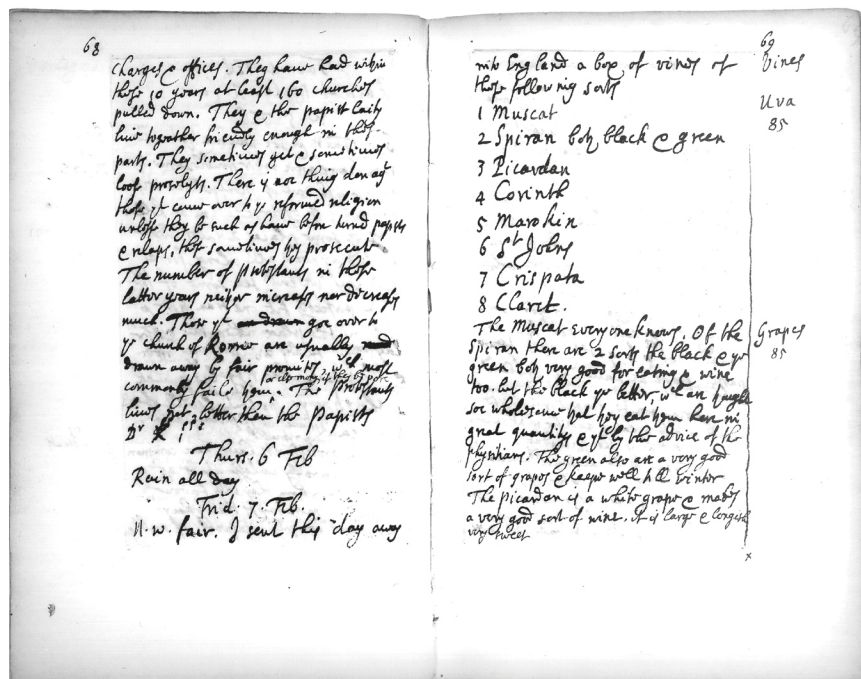 68
charges & offices. They have had within
these 10 years at least 160 churches
pulled down. They & the papist laity
live togeather friendly enough in these
parts. They sometimes get & sometimes
loose proselyts. There is noe thing don agt
those yt come over to ye reformed religion
unlesse they be such as have before turnd papists
& relaps, these sometimes they prosecute.
The number of protestants in these
latter years neither increases nor decreases
much. Those yt goe over to
ye church of Rome are usually
drawn away by fair promises wch most
commonly faile them or els mony if they be pore. The Protestants
live not better then the Papists
Dr
Thurs. 6 Feb
Rain all day
Frid. 7. Feb.
N.w. fair. I sent this day away
69
into England a box of vines of
these following sorts
Vines
1 Muscat
Uva
85
2 Spiran both black & green
3 Picardan
4 Corinth
5 Marokin
6 St Johns
7 Crispata
8 Claret.
The Muscat everyone knows. Of the
Grapes
85
Spiran there are 2 sorts the black & ye
green both very good for eating & wine
too. but the black ye better, wch are thought
soe wholesome that they eat them here in
great quantity & yt by the advice of the
physitians. The green also are a very good
sort of grapes & keepe well till winter
The picardan is a white grape & makes
a very good sort of wine. it is large & longish
very sweet
x